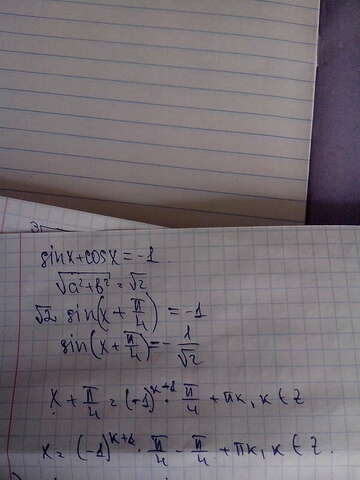 sinx+cosx=-1
√a²+b² = √2
√2 sin(x + π/4) = -1
sin(x + π/4) = - 1/√2
x + π/4 = (-1)^k+1 · π/4 + πk, k ∈ Z
x = (-1)^k+1 · π/4 - π/4 + πk, k ∈ Z.